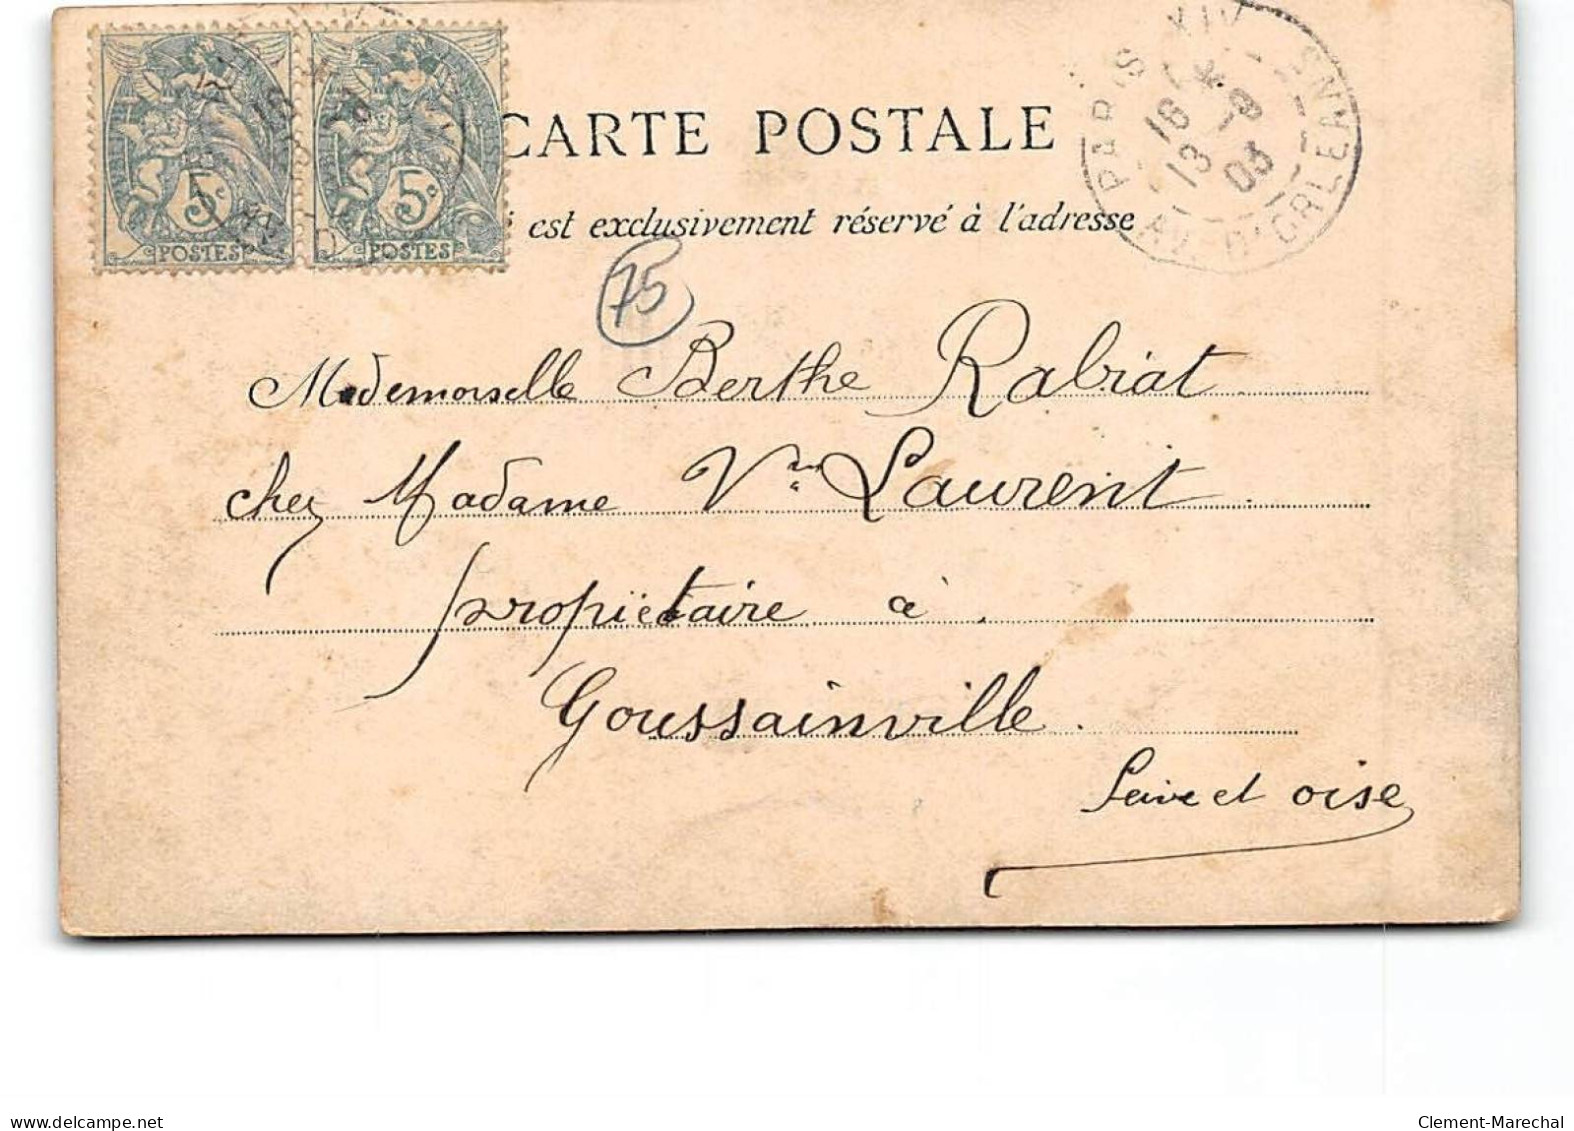 5c
POSTES
5c
POSTES
CARTE POSTALE
PARIS XIV
AV. D'ORLEANS
16
13 -8
03
est exclusivement réservé à l'adresse
75
Mademoiselle Berthe Rabiat
chez Madame Vve Laurent
propriétaire à
Goussainville.
Seine et oise
www.delcampe.net
Clement-Marechal